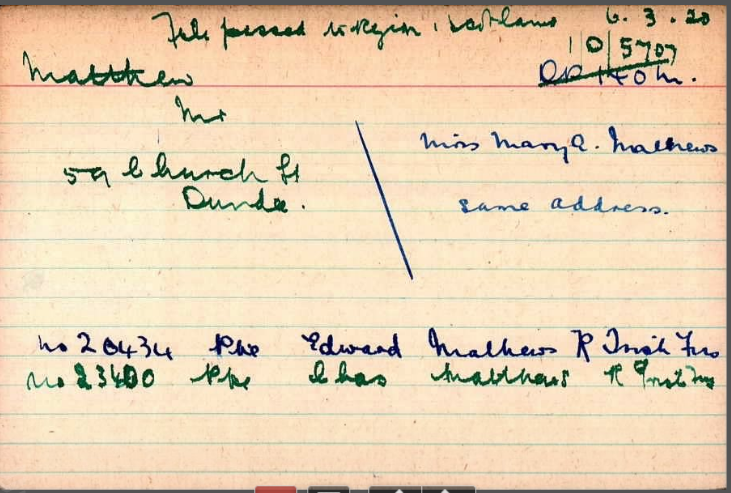 File passed to Region, Scotland 6.3.20
10/5707
Matthew
Mr
Miss Mary E. Mathews
59 Church St
Dundee.
same address.
No 20434 Pte Edward Mathews R Irish Fus
No 23400 Pte Chas Matthews R Irish Fus